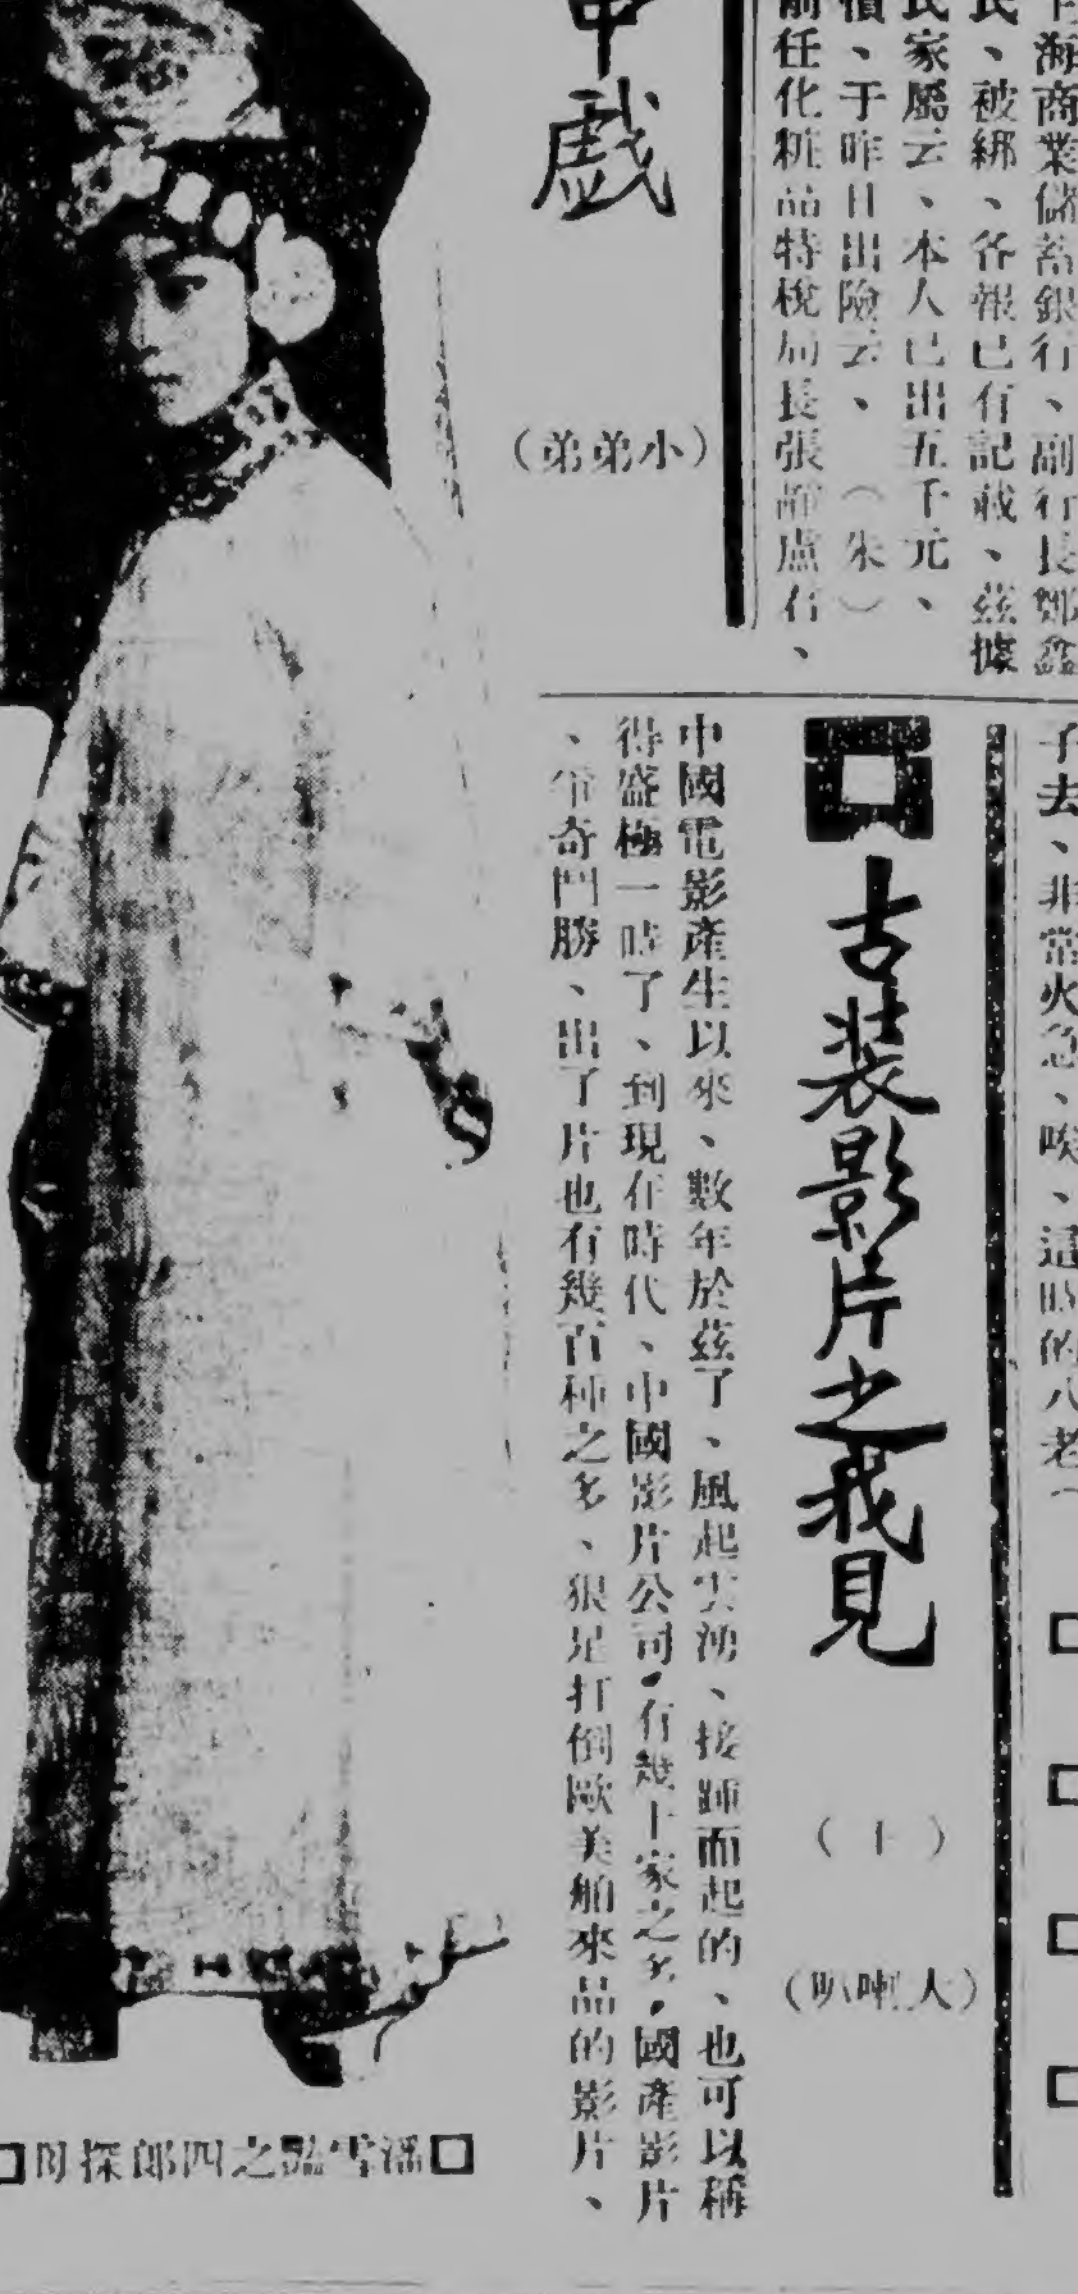 海商業儲蓄銀行、副行長鄭鑫
民、被綁、各報已有記載、茲據
民家屬云、本人已出五千元、
價、于昨日出險云、（朱）
前任化粧品特稅局長張
戲
（弟弟小）
子去、非常火急、唉、這時的八老
古装影片之我見
（叭喇大）
中國電影產生以來、數年於茲了、風起雲湧、接踵而起的、也可以稱
得盛極一時了、到現在時代、中國影片公司，有幾十家之多，國產影片
、爭奇鬥勝、出了片也有幾百種之多、狠足打倒歐美舶來品的影片、
□母探郎四之豔雪潘□